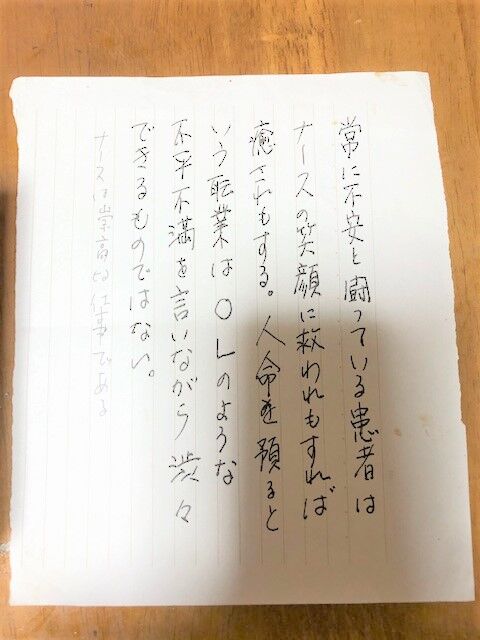 常に不安と闘っている患者は
ナースの笑顔に救われもすれば
癒されもする。人命を預ると
いう職業はＯＬのような
不平不満を言いながら渋々
できるものではない。
ナースは崇高な仕事である